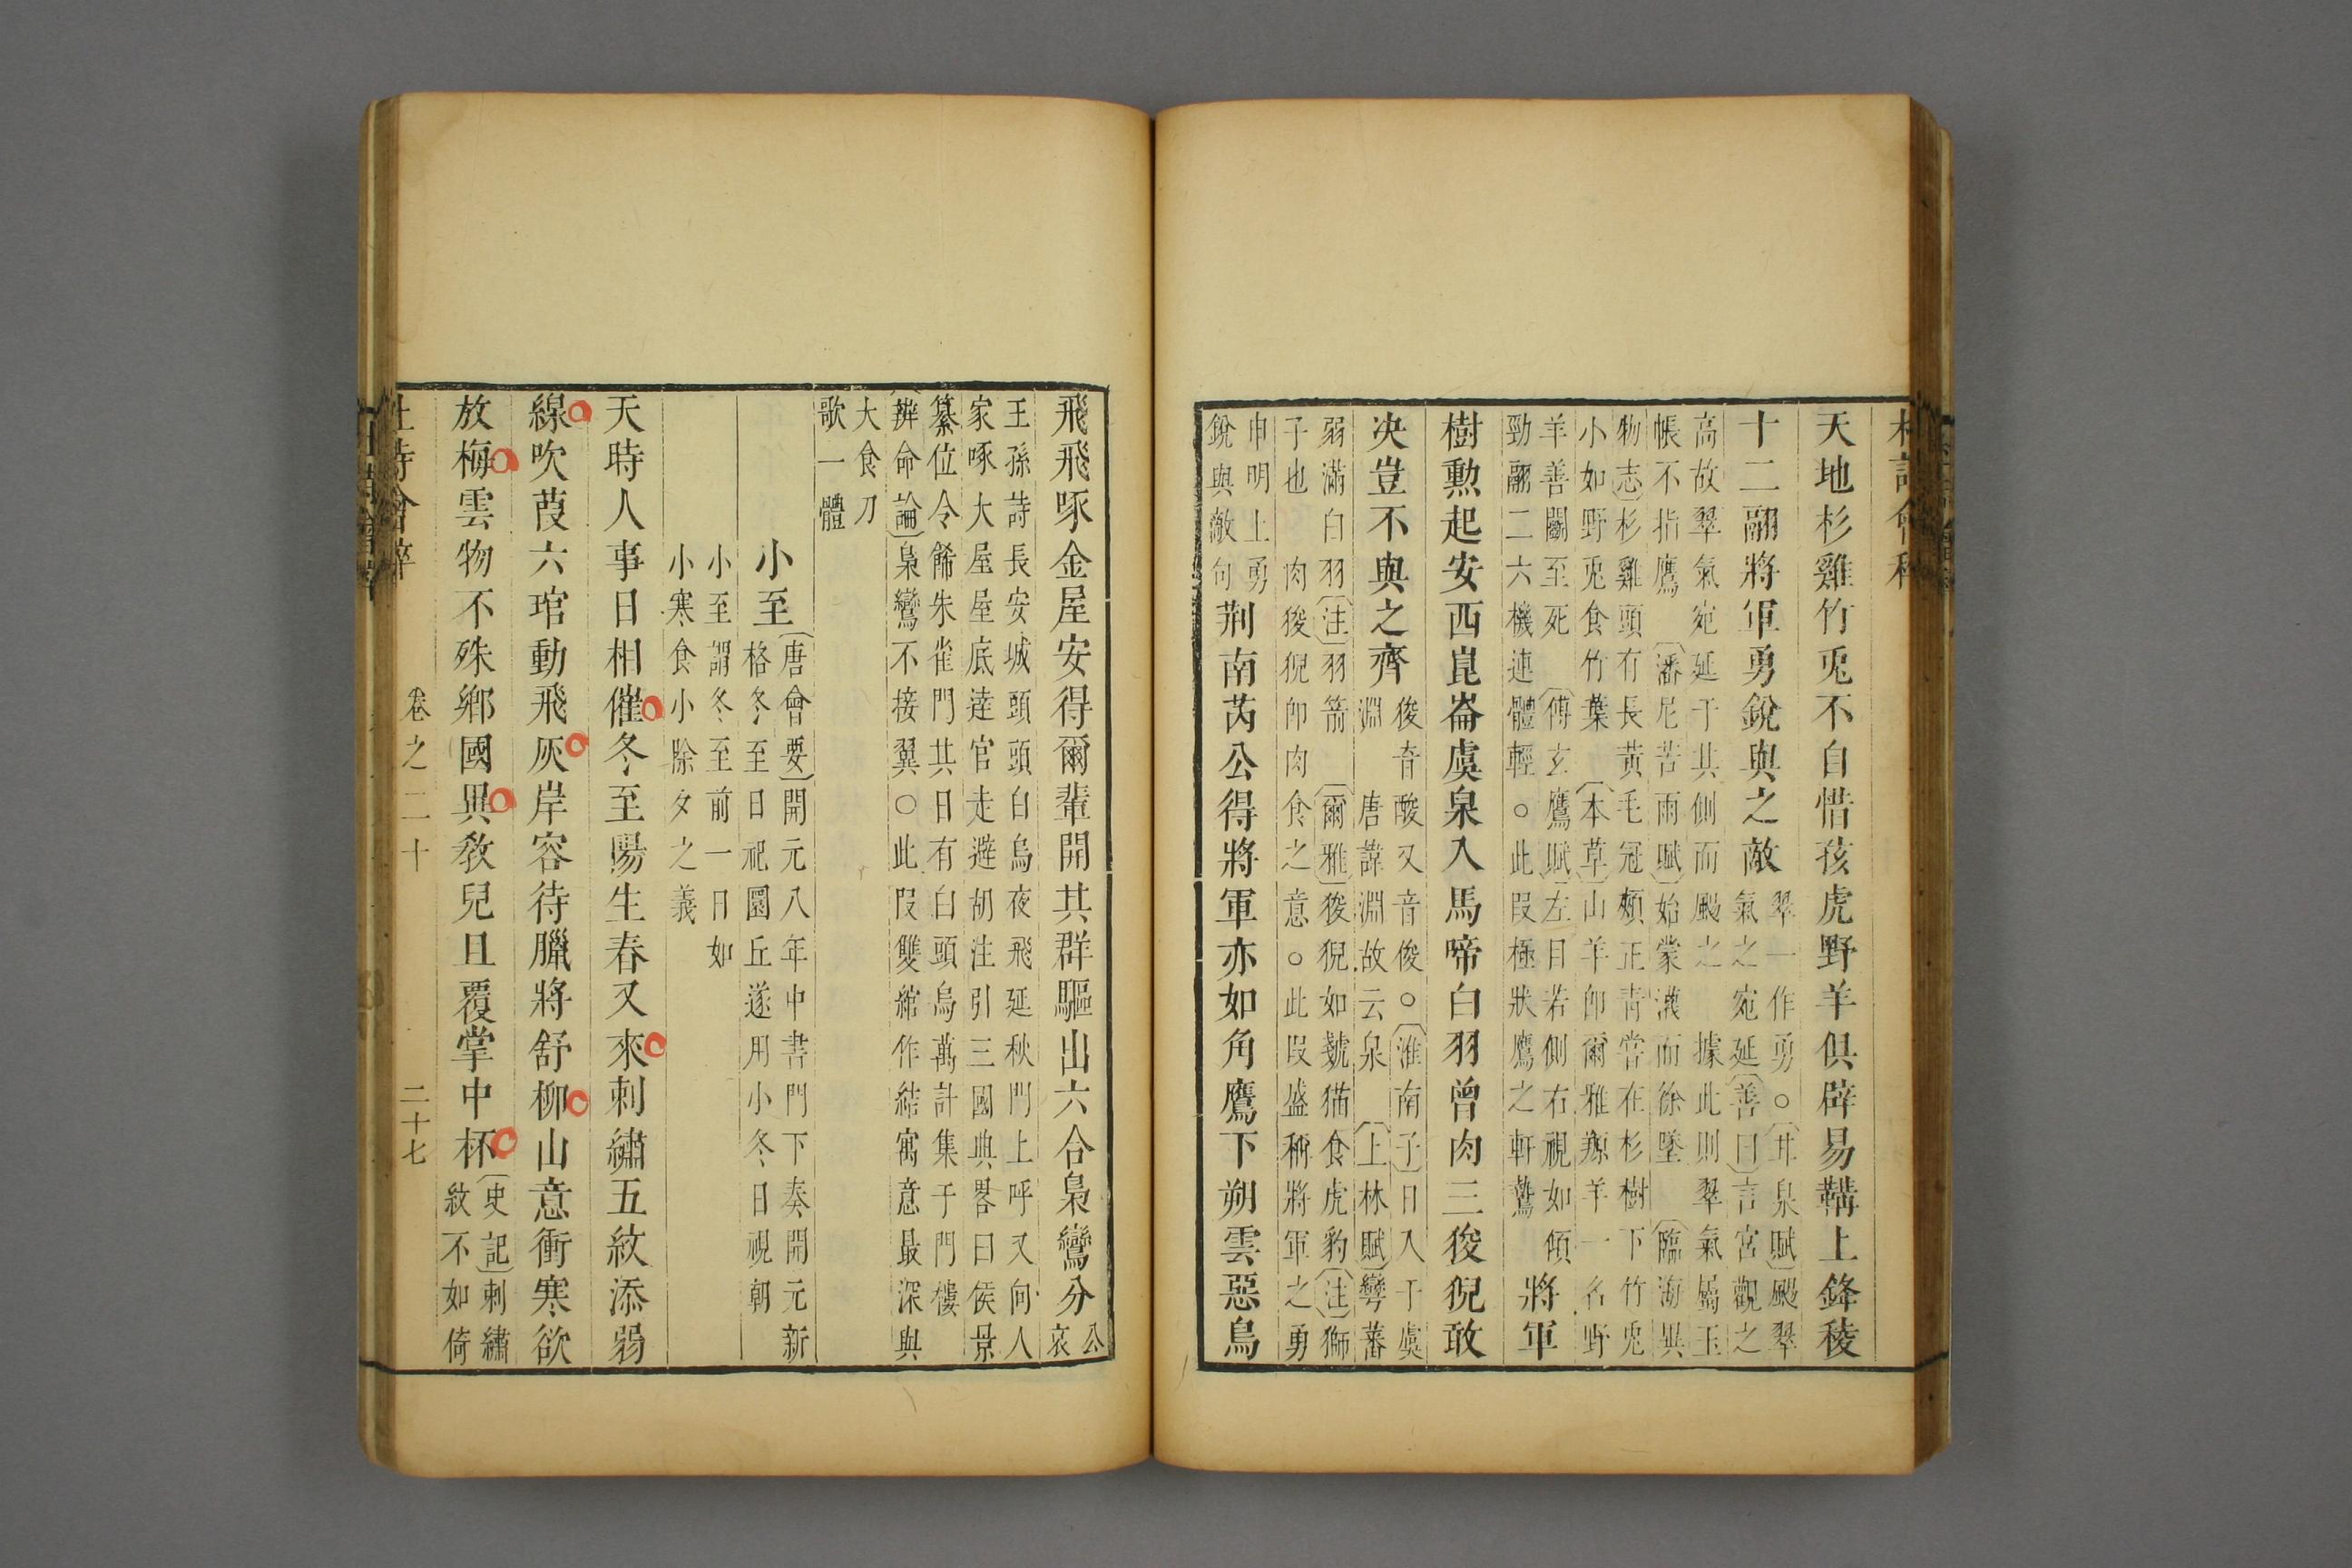 天地杉雞竹兎不自惜孩虎野羊俱辟易鞲上鋒稜
十二翮將軍勇銳與之敵
翠一作勇○甘泉賦颺翠
氣之宛延善曰言宮觀之
高故翠氣宛延于其側而颺之 據此則翠氣屬玉
帳不指鷹 潘尼苦雨賦始蒙瀎而徐墜 臨海異
物志杉雞頭有長黃毛冠頰正青常在杉樹下竹兎
小如野兎食竹葉 本草山羊卽爾雅羱羊一名野
羊善鬬至死 傅玄鷹賦左目若側右視如傾
勁翮二六機連體輕○此段極狀鷹之軒鷙
將軍
樹勲起安西崑崙虞泉入馬啼白羽曾肉三狻猊敢
决豈不與之齊
俊音酸又音俊○淮南子日入于虞
淵 唐諱淵故云泉 上林賦彎蕃
弱滿白羽注羽箭 爾雅狻猊如虦猫食虎豹注獅
子也 肉狻猊卽肉食之意○此段盛稱將軍之勇
申明上勇
銳與敵句
荆南芮公得將軍亦如角鷹下朔雲惡鳥
飛飛啄金屋安得爾輩開其群驅出六合梟鸞分
公
哀
王孫詩長安城頭頭白烏夜飛延秋門上呼又向人
家啄大屋屋底達官走避胡注引三國典畧曰侯景
纂位令餙朱雀門其日有白頭烏萬計集于門樓
辨命論梟鸞不接翼○此段雙綰作結寓意最深與
大食刀
歌一體
小至
唐會要開元八年中書門下奏開元新
格冬至日祀圜丘遂用小冬日視朝
小至謂冬至前一日如
小寒食小除夕之義
天時人事日相催冬至陽生春又來刺繡五紋添弱
線吹葭六琯動飛灰岸容待臘將舒柳山意衝寒欲
放梅雲物不殊鄉國異敎兒且覆掌中杯
史記刺繡
紋不如倚
卷之二十
二十七